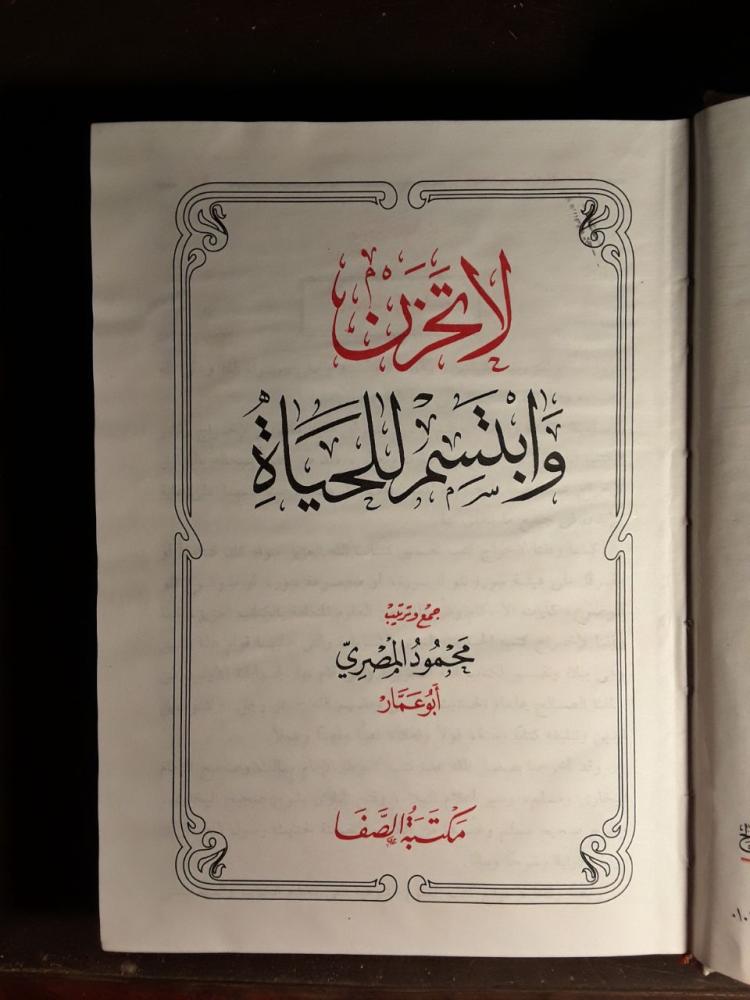 لَا تَحْزَنْ
وَابْتَسِمْ لِلْحَيَاةِ
جمع وترتيب
مَحْمُودُ المِصْرِيّ
أَبُو عَمَّارْ
مَكْتَبَةُ الصَّفَا